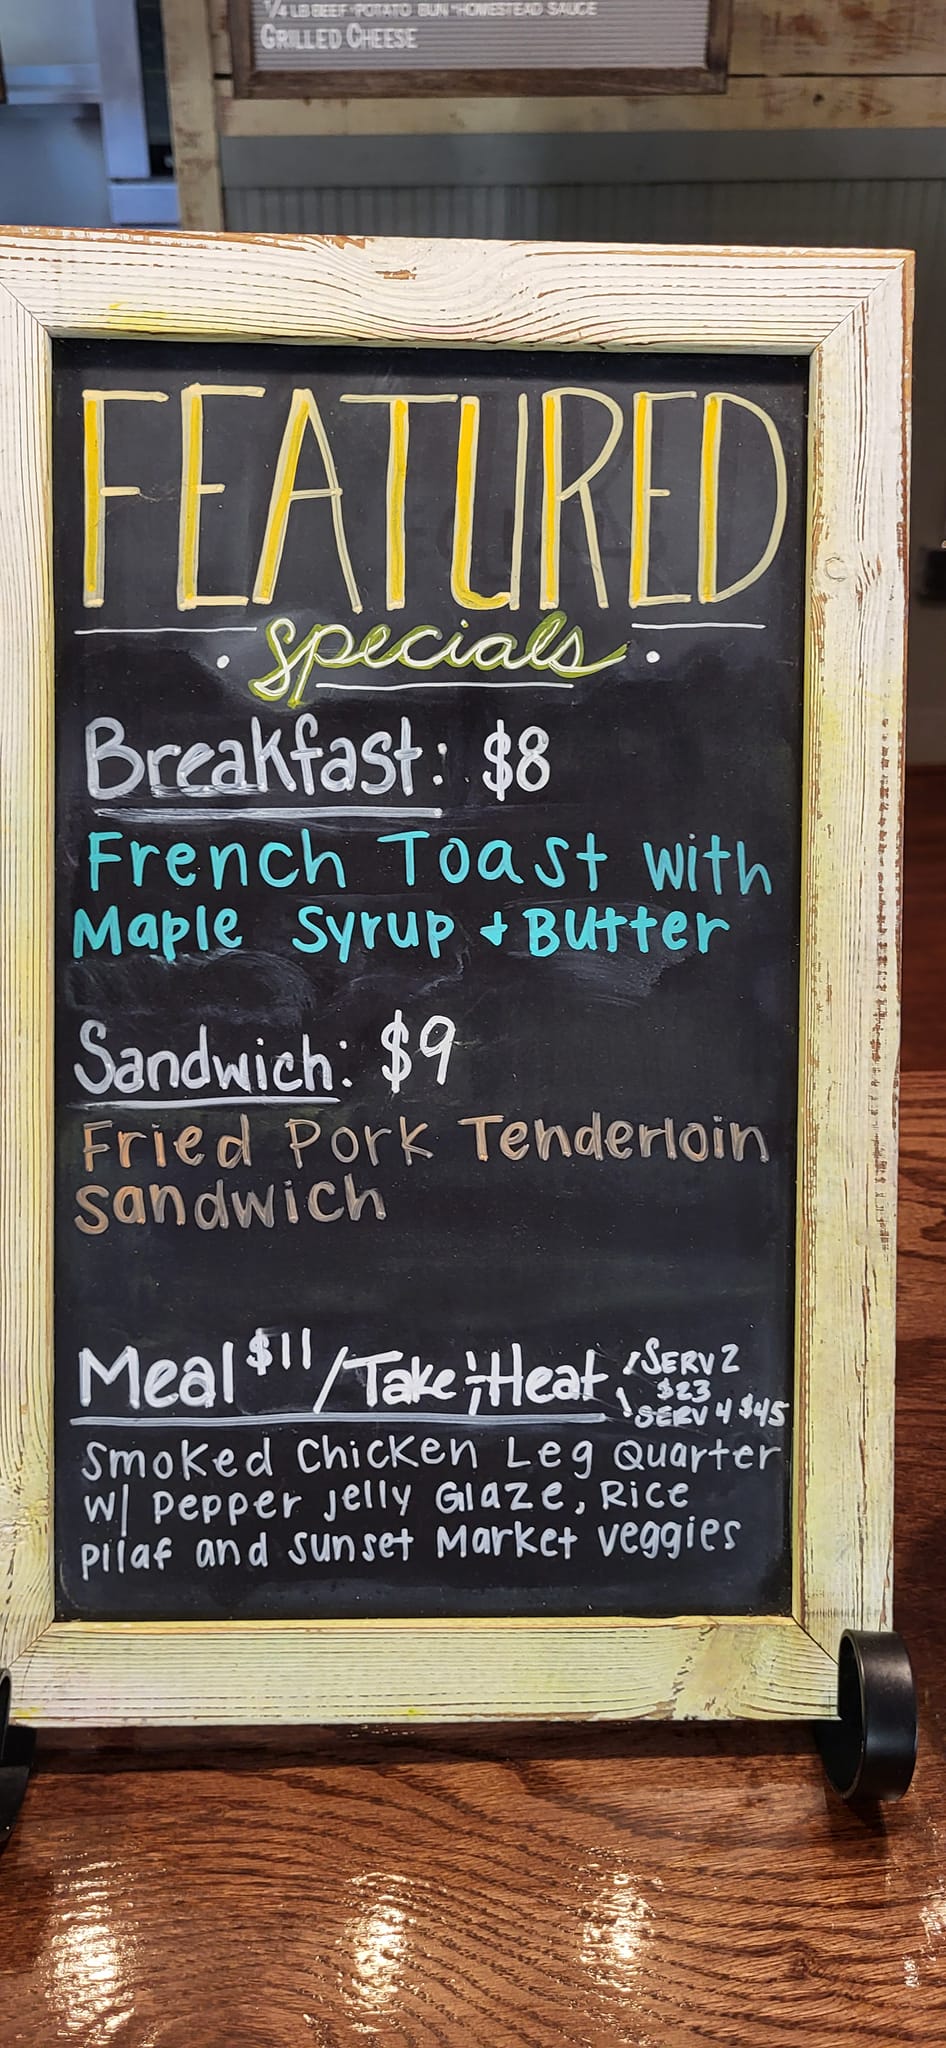 1/4 LB BEEF · POTATO BUN · HOMESTEAD SAUCE
GRILLED CHEESE
FEATURED
· specials ·
Breakfast: $8
French Toast with
Maple Syrup + Butter
Sandwich: $9
Fried Pork Tenderloin
sandwich
Meal $11 / Take & Heat / SERV 2
$23
\ SERV 4 $45
Smoked Chicken Leg Quarter
w/ Pepper Jelly Glaze, Rice
Pilaf and Sunset Market veggies